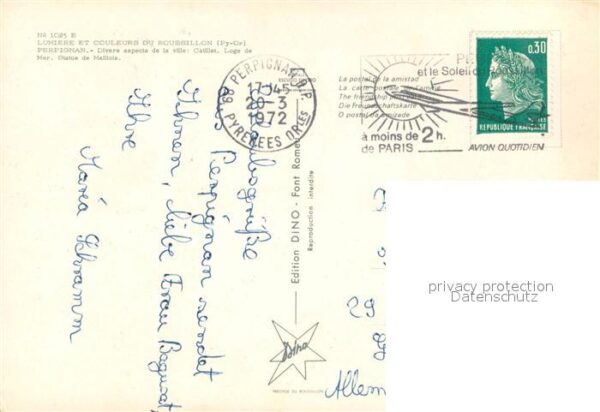 Nº 1025 E
LUMIERE ET COULEURS DU ROUSSILLON (Py-Or)
PERPIGNAN. - Divers aspects de la ville: Castillet. Loge de
Mer. Statue de Maillol.
PERPIGNAN R.P.
17H45
20-3
1972
66 PYRENEES ORles
et le Soleil
à moins de 2h.
de PARIS
AVION QUOTIDIEN
La postal de la amistad
La carte postale de l'amitié
The friendship post card
Die Freundschaftskarte
O postal da amizade
0,30
REPUBLIQUE FRANÇAISE
Urlaubsgrüße
aus Perpignan sendet
Ihnen, liebe Frau
Ihre
Maria Schramm
Edition DINO - Font Romeu
Reproduction interdite
Dino
29
Allem
privacy protection
Datenschutz